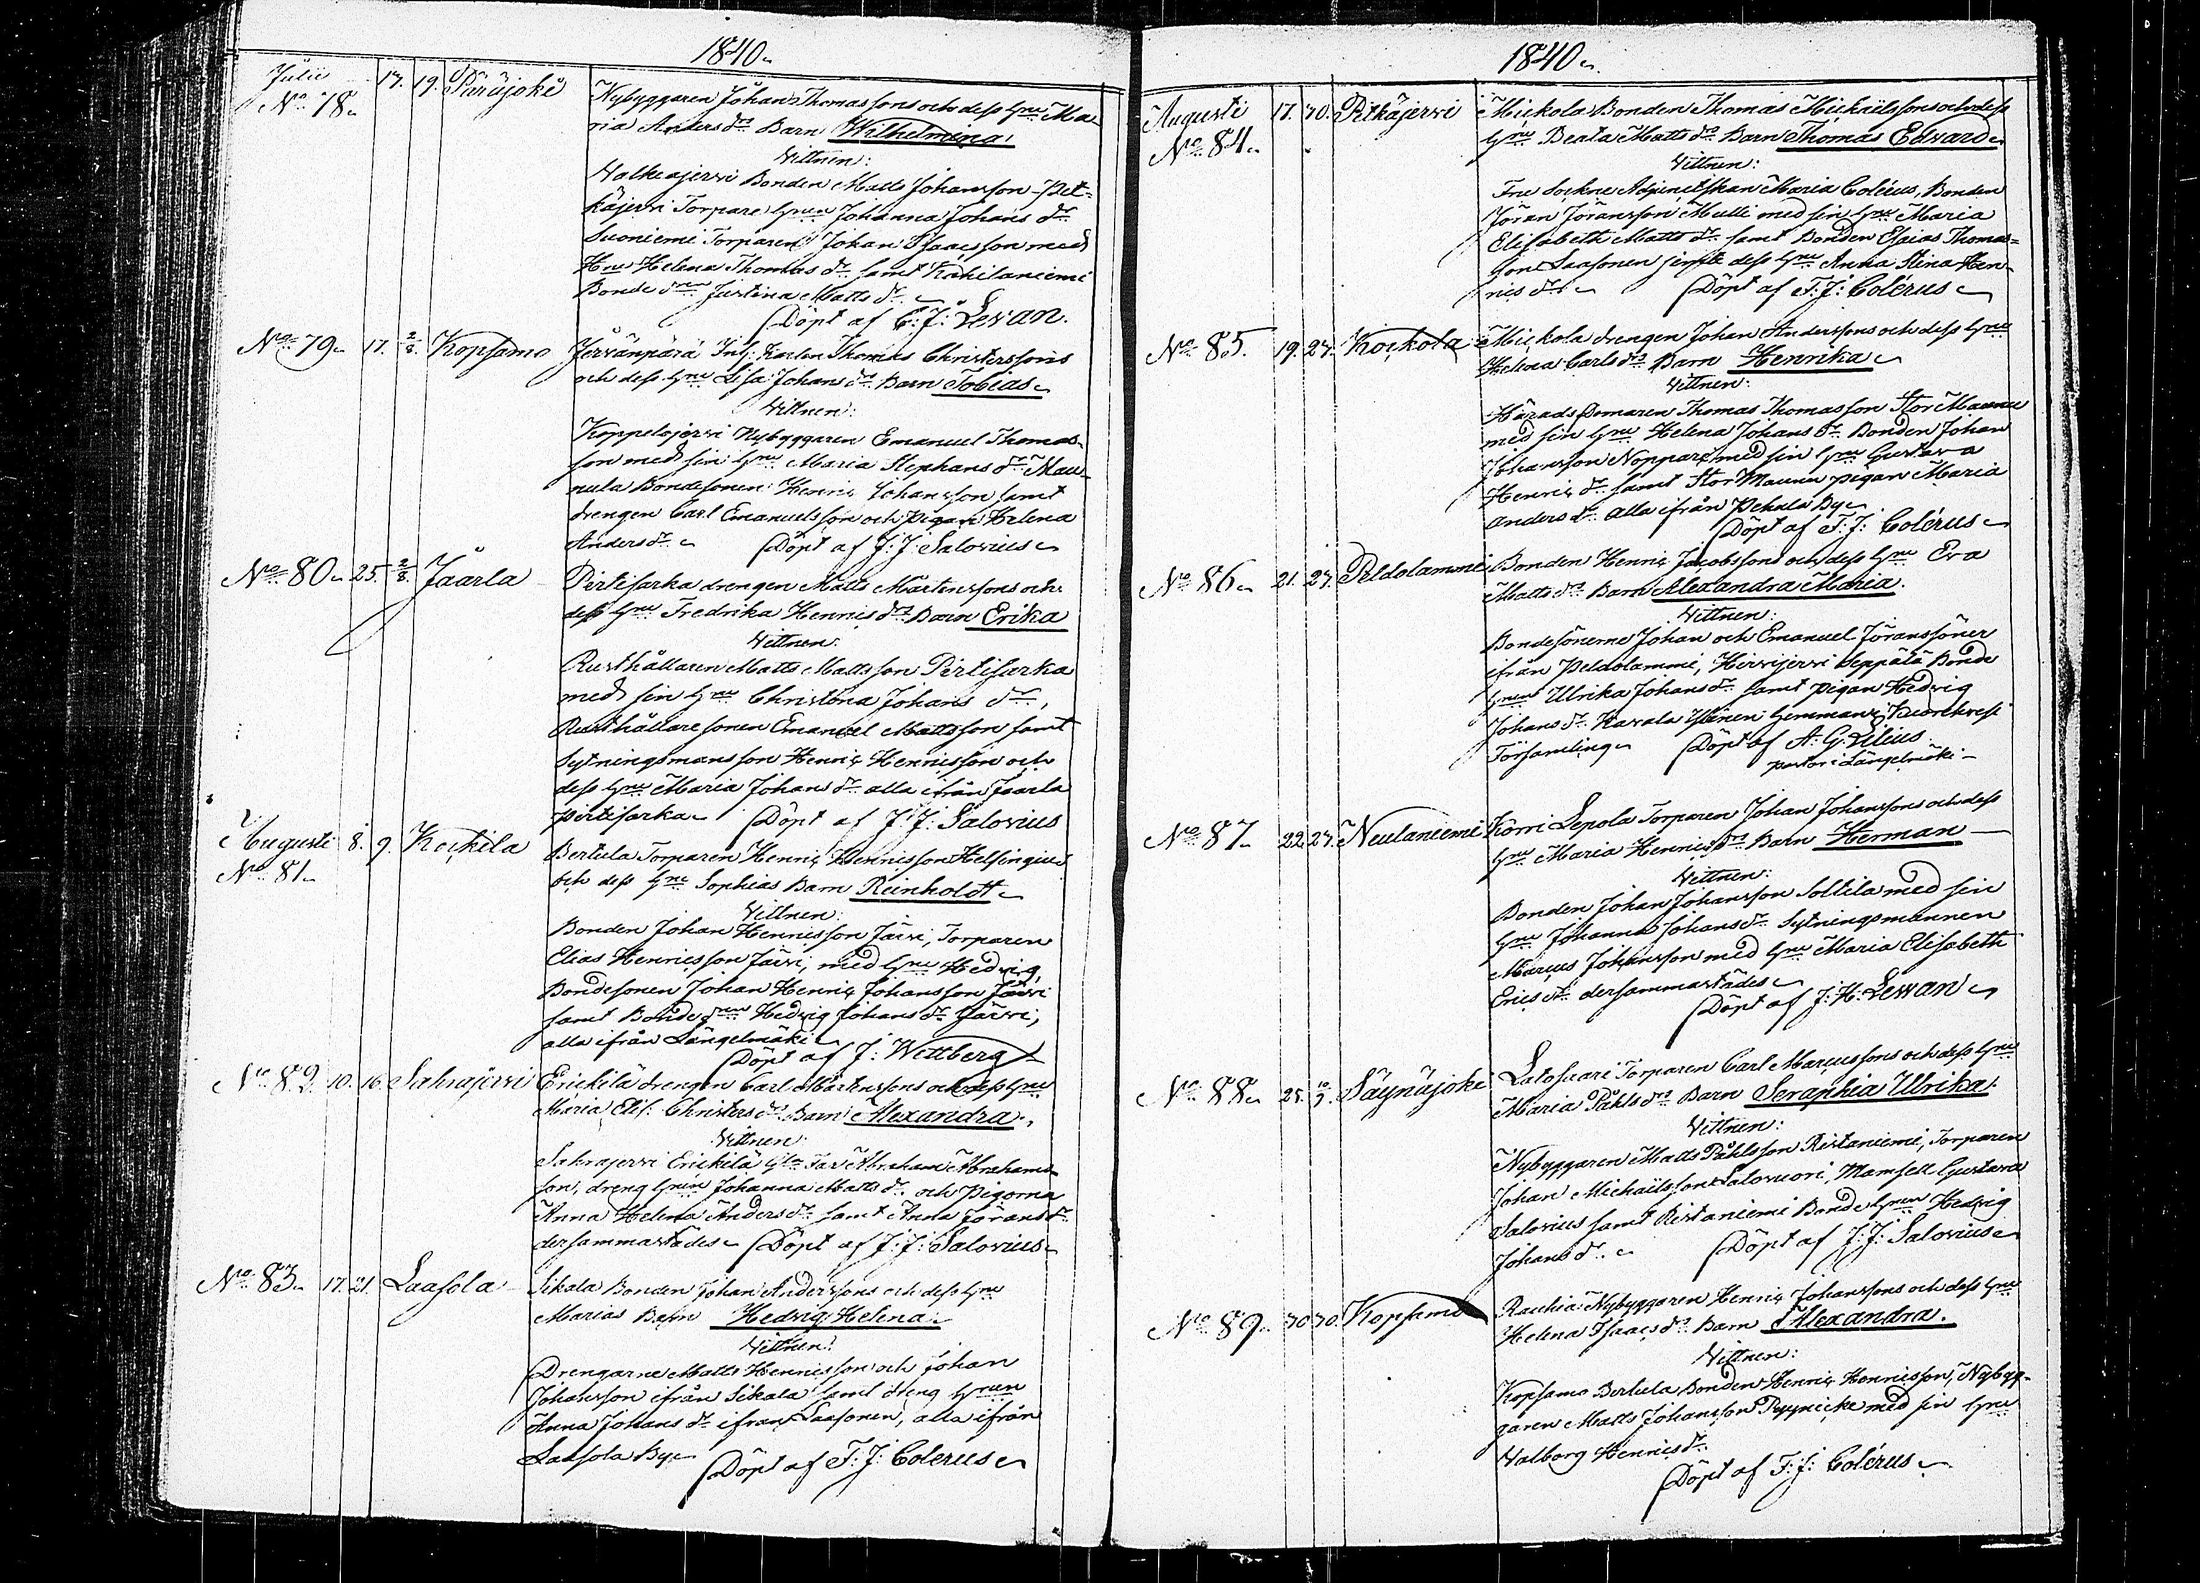 1840
Julii
No 78 17. 19. Pärüjoki Nybyggaren Johan Thomassons och dess Hru Ma-
ria Anders dr Barn Wilhelmina.
Vittnen:
Valkeajerwi Bonden Matts Johansson Pit-
käjerwi Torpare Hrun Johanna Johans dr
Suoniemi Torparen Johan Isaacsson med
Hru Helena Thomas dr samt Kahilaniemi
Bonde dren Justina Matts dr
Döpt af C: J: Levan.
No 79 17. 2/8. Kopsamo Jerwänpärä Inh: Karlen Thomas Christerssons
och dess Hru Lisa Johans dr Barn Tobias
Vittnen:
Koppelojerwi Nybyggaren Emanuel Thomas-
son med sin Hru Maria Stephans dr Mau-
nula Bondesonen Henric Johansson samt
drengen Carl Emanuelsson och pigan Helena
Anders dr Döpt af J: J: Salovius
No 80 25. 2/8. Jåårla Pirtisarka drengen Matts Mårtenssons och
dess Hru Fredrika Henrics dr Barn Erika
Vittnen:
Rusthållaren Matts Mattsson Pirtisarka
med sin Hru Christina Johans dr,
Rusthållare sonen Emanuel Mattsson samt
Sytningsmansson Henric Henricsson och
dess Hru Maria Johans dr alla ifrån Jåårla
pirtisarka Döpt af J: J: Salovius
Augusti 8. 9. Kockila Bertula Torparen Henric Henricsson Helsingius
No 81 och dess Hru Sophias Barn Reinholdt
Vittnen:
Bonden Johan Henricsson Järvi, Torparen
Elias Henricsson Järvi, med Hru Hedvig,
Bondesonen Johan Henric Johansson Järvi
samt Bonde dren Hedvig Johans dr Järvi,
alla ifrån Längelmäki
Döpt af J: Wettberg
No 82. 10. 16. Sahrajerwi Erickilä drengen Carl Mårtenssons och dess Hru
Maria Elis: Christers dr Barn Alexandra.
Vittnen:
Sahrajerwi Erickilä Gla Far Abraham Abrahams-
son, dreng Hrun Johanna Matts dr och Pigorna
Anna Helena Anders dr samt Anna Jörans dr
dersammastädes Döpt af J: J: Salovius
No 83 17. 21. Laasola Sikala Bonden Johan Anderssons och dess Hru
Marias Barn Hedvig Helena.
Vittnen:
Drengarne Matts Henricsson och Johan
Johansson ifrån Sikala samt dreng Hrun
Anna Johans dr ifrån Laasonen, alla ifrån
Laasola By Döpt af F: J: Colerus
1840
Augusti 17. 20. Pitkäjerwi Mickola Bonden Thomas Michaelssons och dess
No 84 Hru Beata Matts dr Barn Thomas Edvard
Vittnen:
Fru Sockne Adjunctskan Maria Colérus, Bonden
Jöran Jöransson Mulli med sin Hru Maria
Elisabeth Matts dr samt Bonden Esaias Thomas-
son Laasonen jemte dess Hru Anna Stina Hen-
rics dr Döpt af F: J: Colérus
No 85. 19. 27. Kockola Mickola drengen Johan Anderssons och dess Hru
Helena Carls dr Barn Henrika
Vittnen:
Härads Domaren Thomas Thomasson Stor Maunu
med sin Hru Helena Johans dr Bonden Johan
Johansson Nopparj med sin Hru Gustava
Henrics dr samt Stor Maunu pigan Maria
Anders dr alla ifrån Pekala By
Döpt af F: J: Colérus
No 86 21. 27. Peldolammi Bonden Henric Jacobssons och dess Hru Eva
Matts dr Barn Alexandra Maria.
Vittnen:
Bondesönerne Johan och Emanuel Jöranssöner
ifrån Peldolammi, Hirvijerwi Seppälä Bonde
Hrun Ulrika Johans dr samt pigan Hedvig
Johans dr Kavala Hemmanj Kuorehvesi
Församling Döpt af A: G: Lilius
pastor i Längelmäki
No 87 22. 27. Neulaniemi Körri Lepola Torparen Johan Johanssons och dess
Hru Maria Henrics dr Barn Herman
Vittnen:
Bonden Johan Johansson Soltila med sin
Hru Johanna Johans dr Sytningsmannen
Marcus Johansson med Hru Maria Elisabeth
Erics dr dersammastädes
Döpt af J: H: Levan
No 88 25. Säynäjoki Latosuari Torparen Carl Marcussons och dess Hru
Maria Påhls dr Barn Seraphia Ulrika.
Vittnen:
Nybyggaren Matts Påhlsson Ristaniemi, Torparen
Johan Michaelsson Salovuori, Mamsell Gustava
Salovius samt Ristaniemi Bonde Hrun Hedvig
Johans dr Döpt af J: J: Salovius
No 89 30 30. Kopsamo Rauhia Nybyggaren Henric Johanssons och dess Hru
Helena Isaacs dr Barn Alexandra.
Vittnen:
Kopsamo Bertula Bonden Henric Henricsson, Nybyg-
garen Matts Johansson Pyynicke med sin Hru
Valborg Henrics dr
Döpt af F: J: Colérus